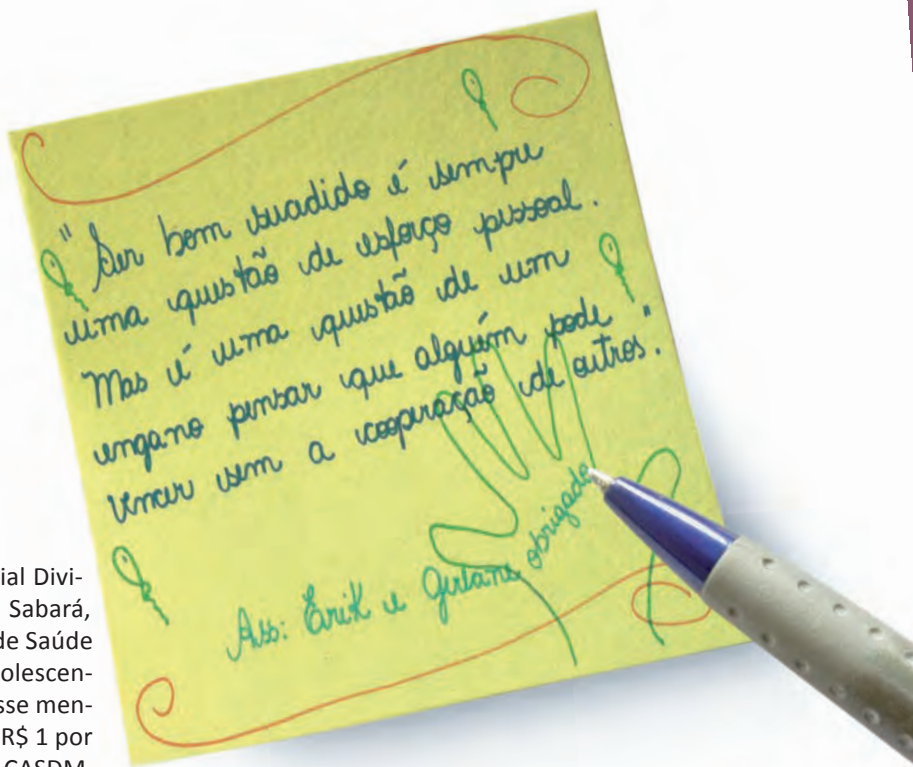 "Ser bem sucedido é sempre
uma questão de esforço pessoal.
Mas é uma questão de um
engano pensar que alguém pode
vencer sem a cooperação de outros."
obrigado
Ass: Erik e Girlane
ial Divi-
Sabará,
de Saúde
olescen-
sse men-
R$ 1 por
CASDM